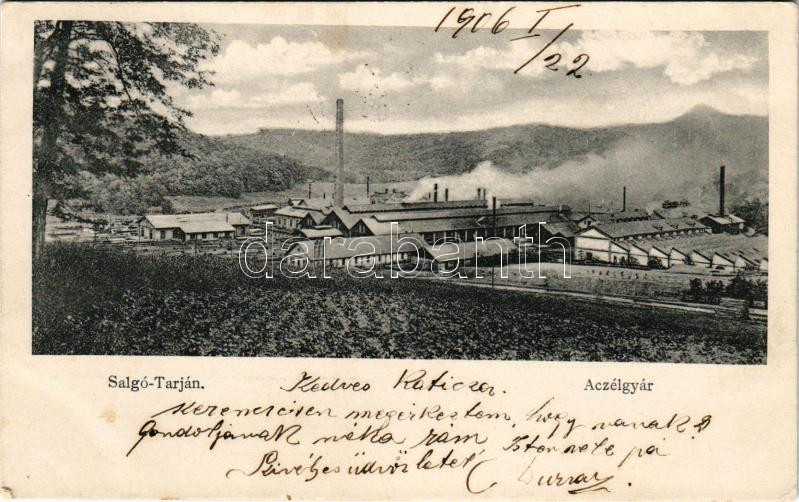 1906 I/22
darabanth
Salgó-Tarján.
Aczélgyár
Kedves Katicza.
szerencsésen megérkeztem, hogy vanak?
Gondoljanak néha rám Isten vele pá
Szivélyes üdvözletel